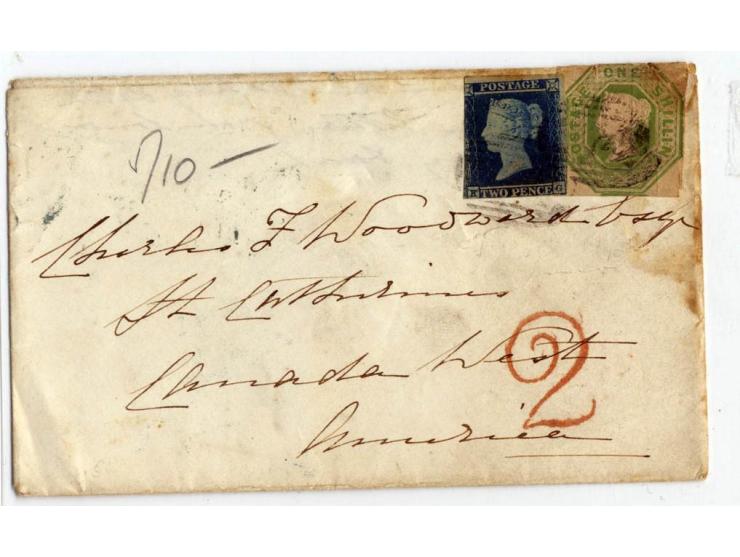 POSTAGE
TWO PENCE
POSTAGE ONE SHILLING
Charles F Woodward Esqr
St Catherines
Canada West
America
2